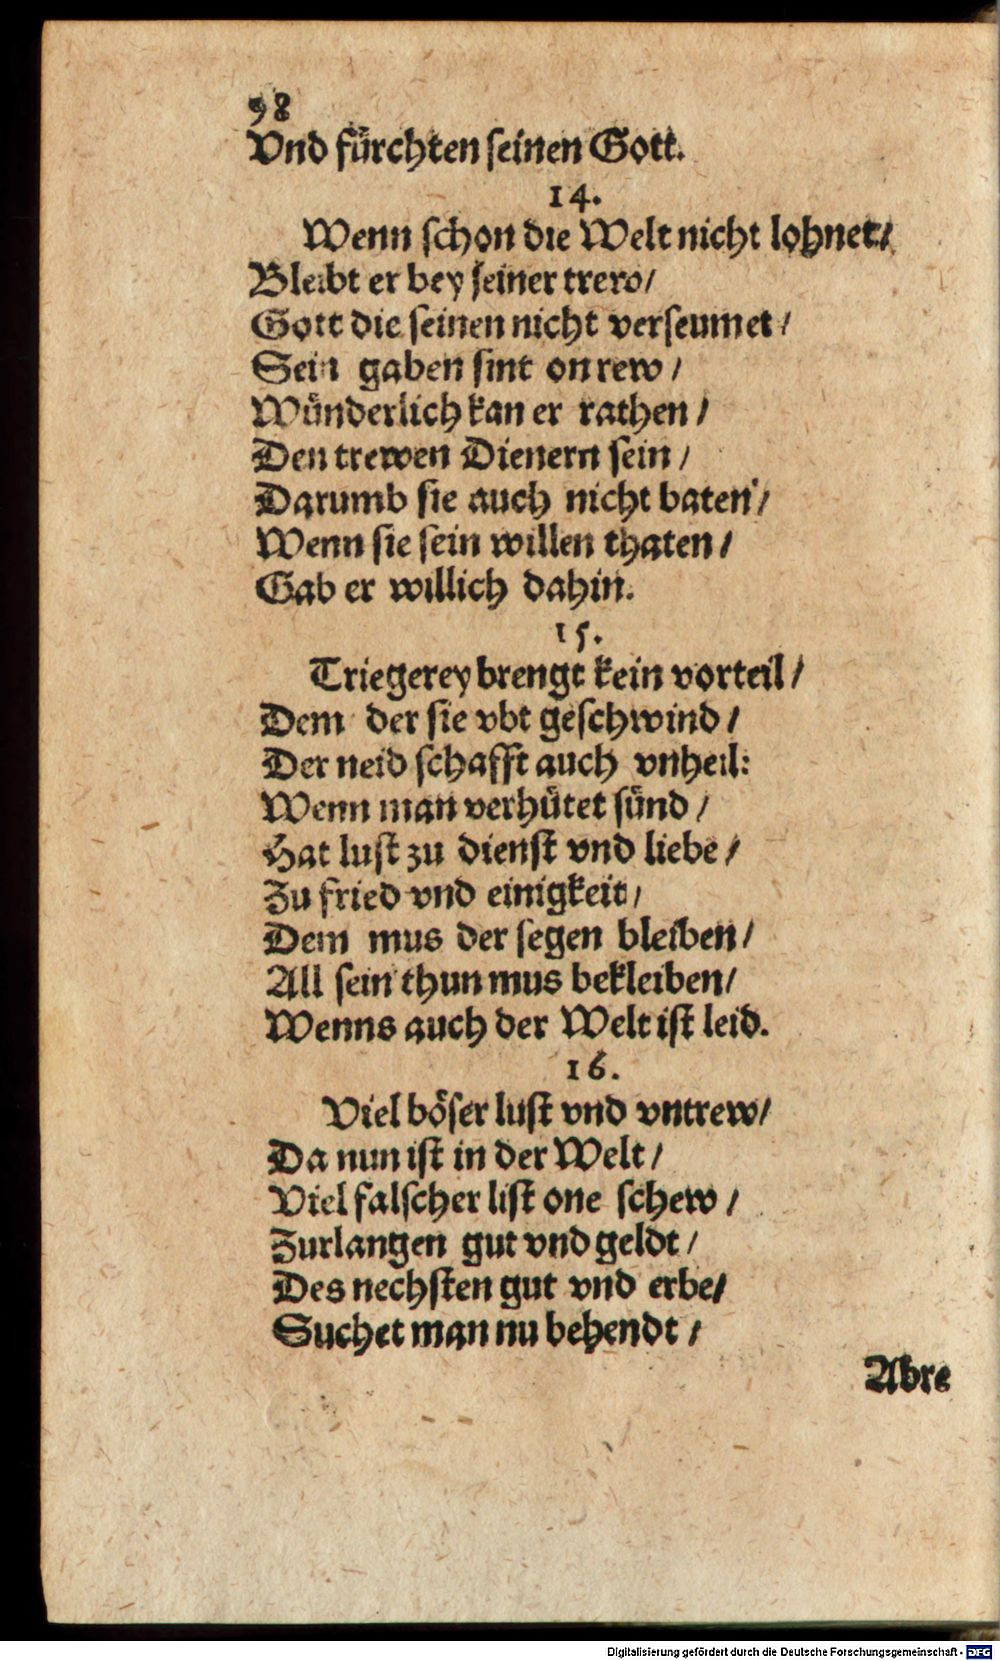 98
Vnd fürchten seinen Gott.
14.
Wenn schon die Welt nicht lohnet/
Bleibt er bey seiner trew/
Gott die seinen nicht verseumet/
Sein gaben sint on rew/
Wünderlich kan er rathen/
Den trewen Dienern sein/
Darumb sie auch nicht baten/
Wenn sie sein willen thaten/
Gab er willich dahin.
15.
Triegerey brengt kein vorteil/
Dem der sie vbt geschwind/
Der neid schafft auch vnheil:
Wenn man verhütet sünd/
Hat lust zu dienst vnd liebe/
Zu fried vnd einigkeit/
Dem mus der segen bleiben/
All sein thun mus bekleiben/
Wenns auch der Welt ist leid.
16.
Viel böser lust vnd vntrew/
Da nun ist in der Welt/
Viel falscher list one schew/
Zurlangen gut vnd geldt/
Des nechsten gut vnd erbe/
Suchet man nu behendt/
Abre
Digitalisierung gefördert durch die Deutsche Forschungsgemeinschaft - DFG